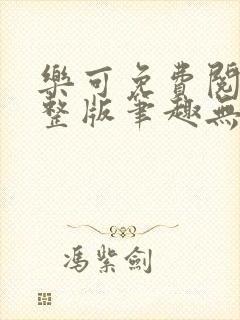 樂可免費閱
整版筆趣無
馮紫劍